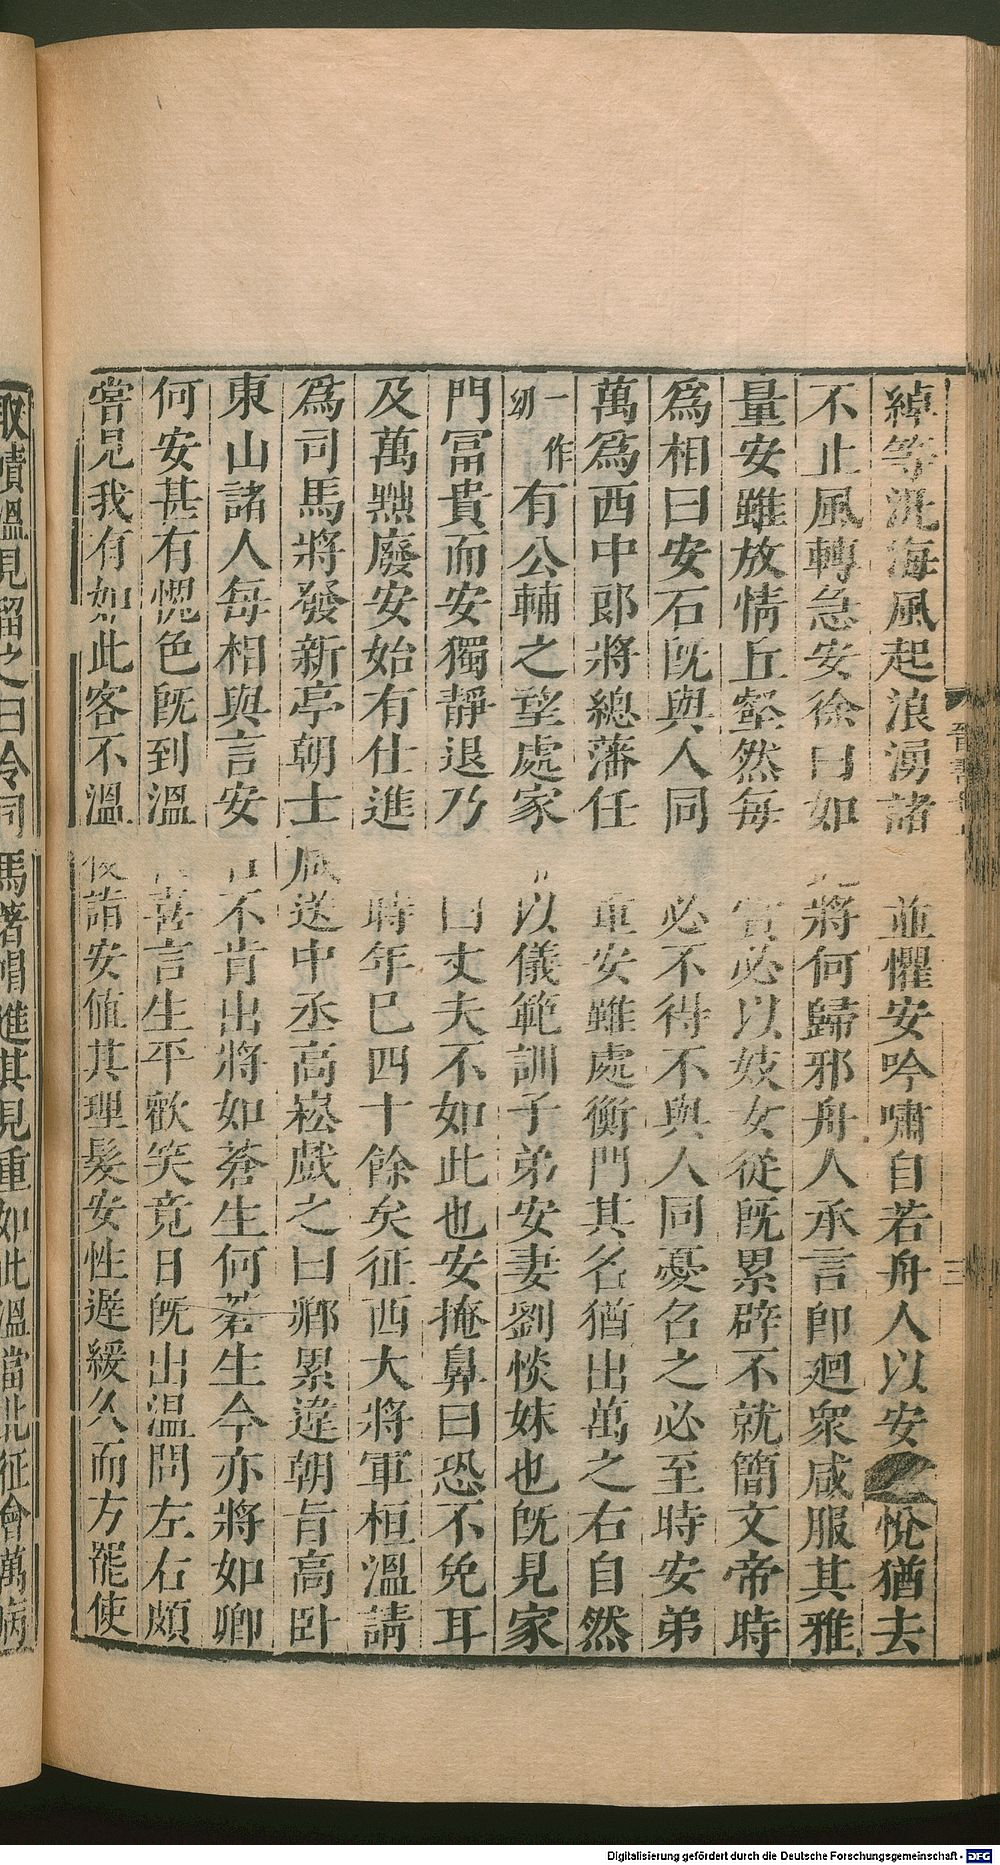 綽等汎海風起浪湧諸並懼安吟嘯自若舟人以安悅猶去
不止風轉急安徐曰如將何歸邪舟人承言卽迴衆咸服其雅
量安雖放情丘壑然每賞必以妓女從旣累辟不就簡文帝時
爲相曰安石旣與人同必不得不與人同憂召之必至時安弟
萬爲西中郎將總藩任重安雖處衡門其名猶出萬之右自然
一作幼有公輔之望處家以儀範訓子弟安妻劉惔妹也旣見家
門富貴而安獨靜退乃曰丈夫不如此也安掩鼻曰恐不免耳
及萬黜廢安始有仕進時年巳四十餘矣征西大將軍桓溫請
爲司馬將發新亭朝士咸送中丞高崧戲之曰卿累違朝旨高卧
東山諸人每相與言安不肯出將如蒼生何蒼生今亦將如卿
何安甚有愧色旣到溫喜言生平歡笑竟日旣出溫問左右頗
嘗見我有如此客不溫後詣安値其理髮安性遲緩久而方罷使
取幘溫見留之曰令司馬著帽進其見重如此溫當北征會萬病
三
Digitalisierung gefördert durch die Deutsche Forschungsgemeinschaft - DFG